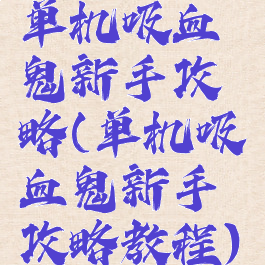 单机吸血
鬼新手攻
略(单机吸
血鬼新手
攻略教程)